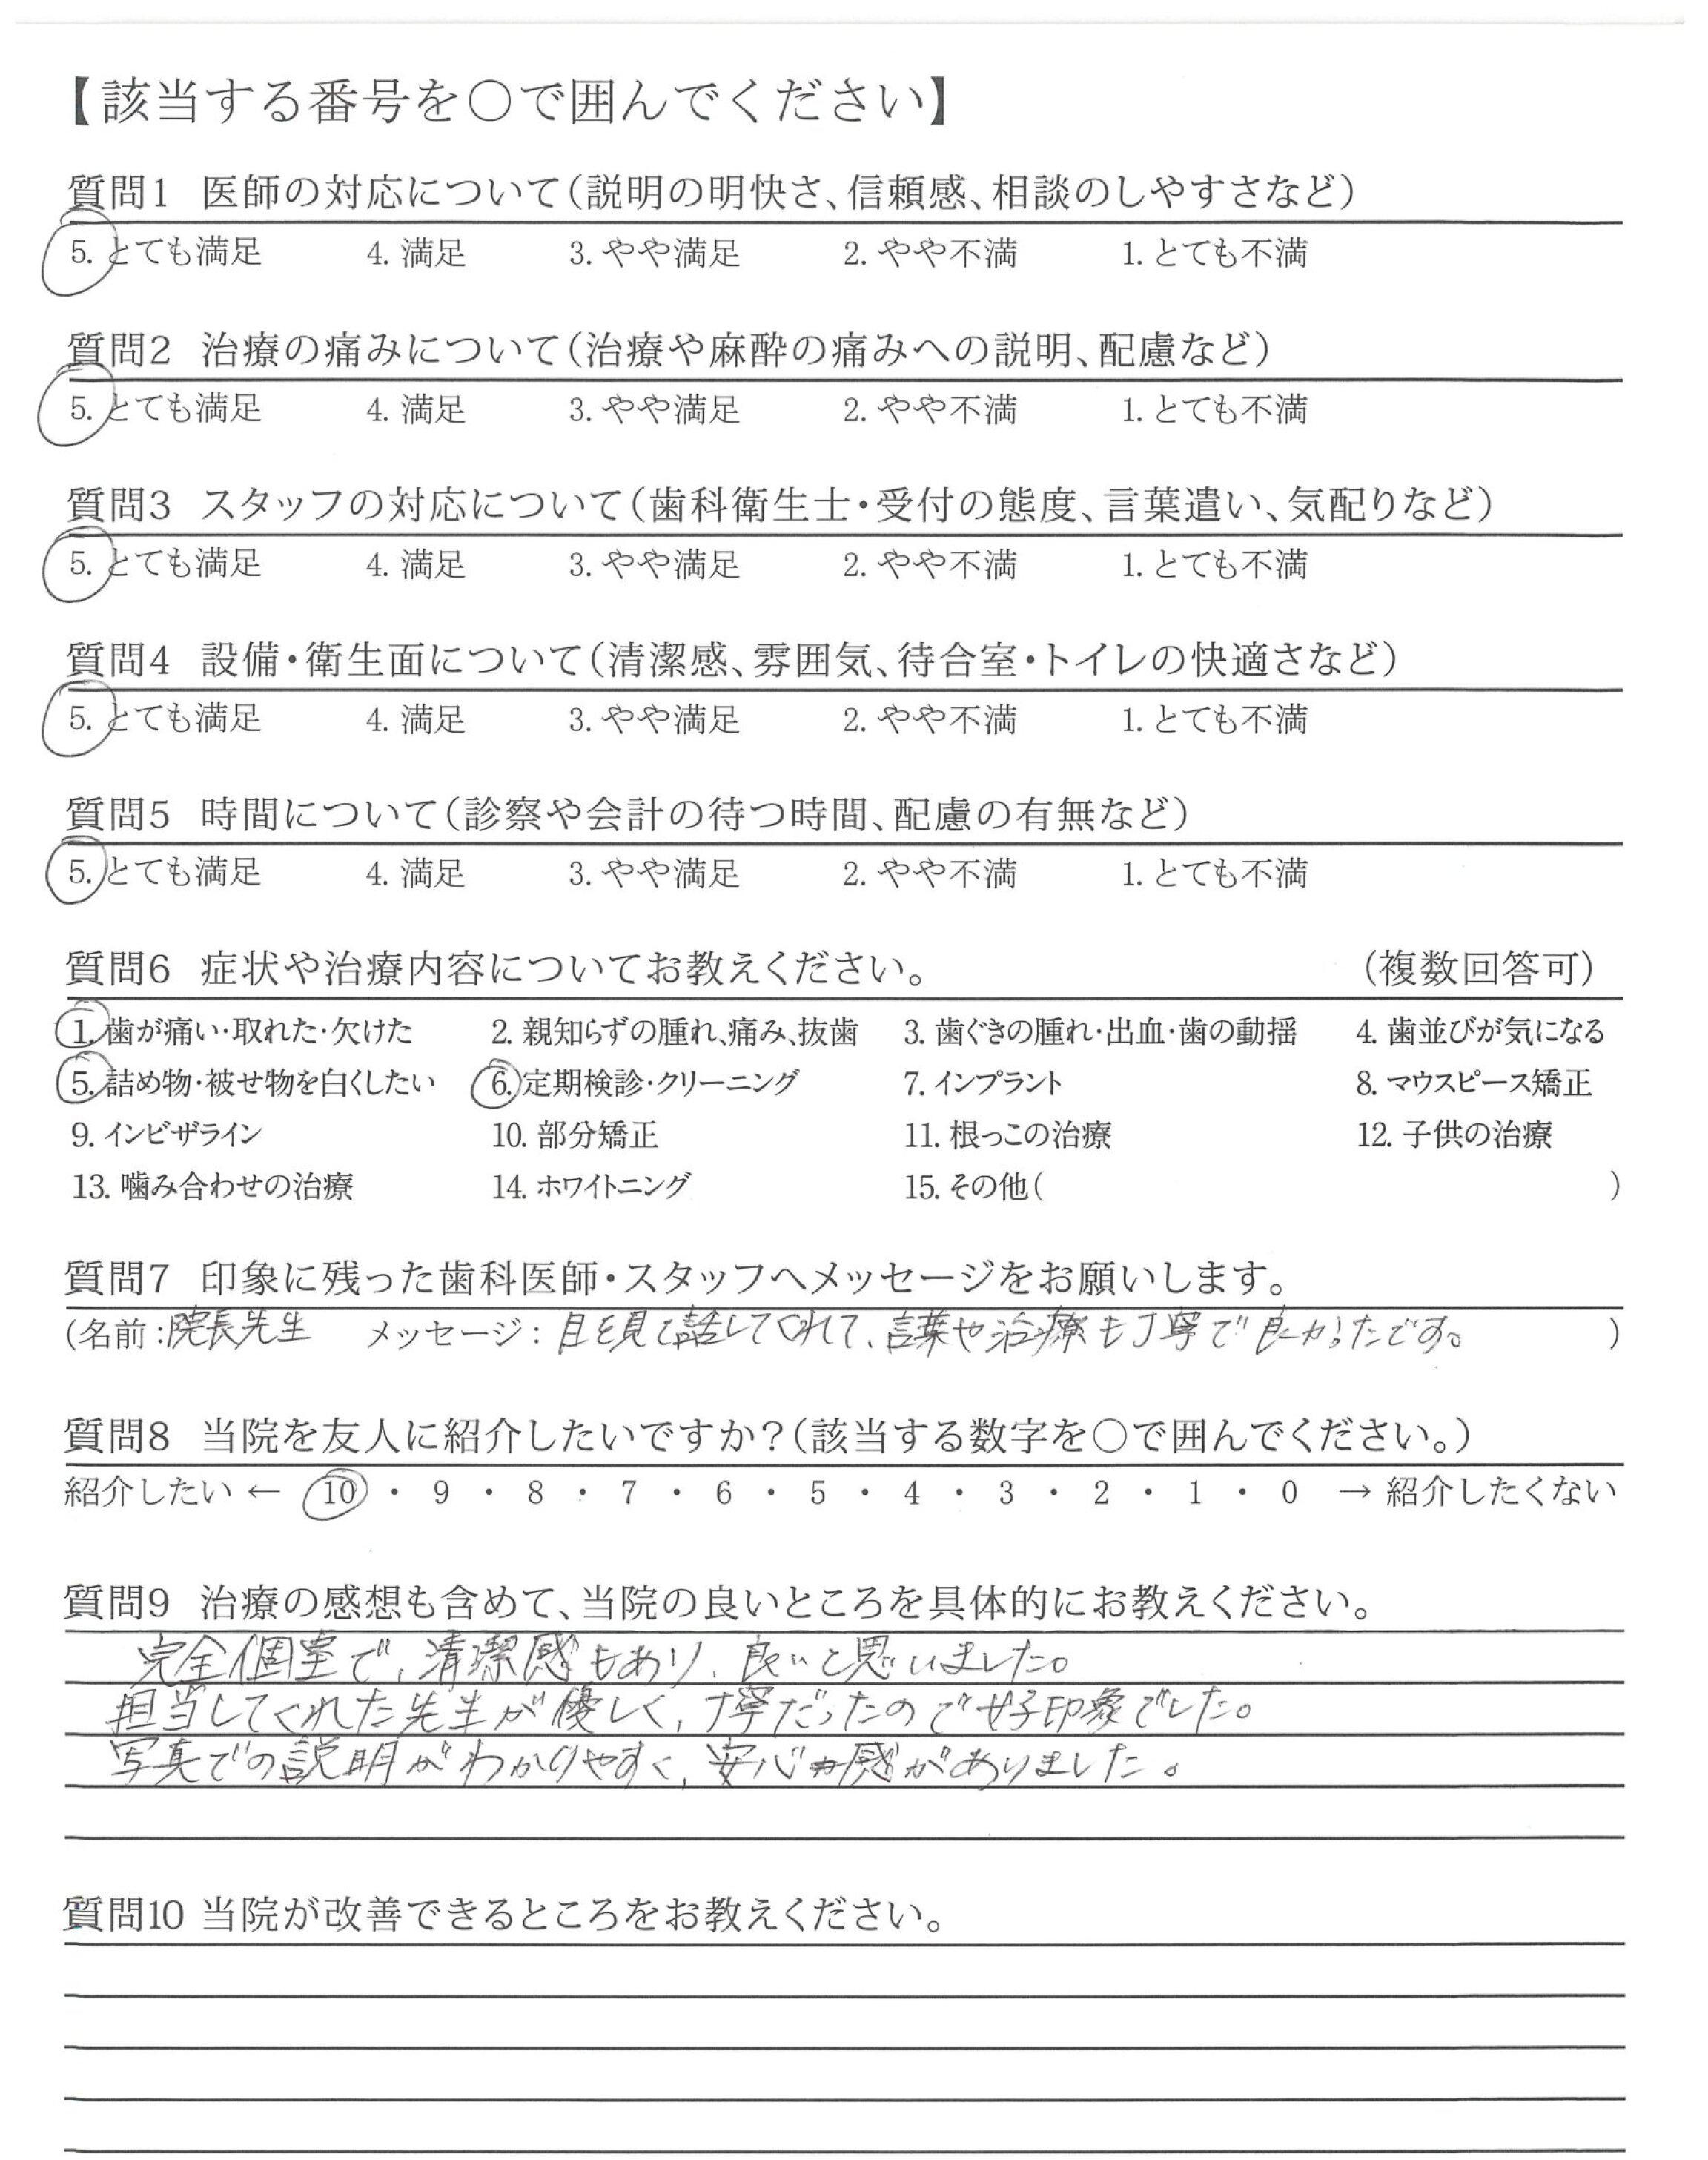 【該当する番号を〇で囲んでください】
質問1 医師の対応について（説明の明快さ、信頼感、相談のしやすさなど）
5. とても満足 4. 満足 3. やや満足 2. やや不満 1. とても不満
質問2 治療の痛みについて（治療や麻酔の痛みへの説明、配慮など）
5. とても満足 4. 満足 3. やや満足 2. やや不満 1. とても不満
質問3 スタッフの対応について（歯科衛生士・受付の態度、言葉遣い、気配りなど）
5. とても満足 4. 満足 3. やや満足 2. やや不満 1. とても不満
質問4 設備・衛生面について（清潔感、雰囲気、待合室・トイレの快適さなど）
5. とても満足 4. 満足 3. やや満足 2. やや不満 1. とても不満
質問5 時間について（診察や会計の待つ時間、配慮の有無など）
5. とても満足 4. 満足 3. やや満足 2. やや不満 1. とても不満
質問6 症状や治療内容についてお教えください。 （複数回答可）
1. 歯が痛い・取れた・欠けた 2. 親知らずの腫れ、痛み、抜歯 3. 歯ぐきの腫れ・出血・歯の動揺 4. 歯並びが気になる
5. 詰め物・被せ物を白くしたい 6. 定期検診・クリーニング 7. インプラント 8. マウスピース矯正
9. インビザライン 10. 部分矯正 11. 根っこの治療 12. 子供の治療
13. 噛み合わせの治療 14. ホワイトニング 15. その他（ ）
質問7 印象に残った歯科医師・スタッフへメッセージをお願いします。
（名前：院長先生 メッセージ：目を見て話してくれて、言葉や治療も丁寧で良かったです。 ）
質問8 当院を友人に紹介したいですか？（該当する数字を〇で囲んでください。）
紹介したい ← 10 ・ 9 ・ 8 ・ 7 ・ 6 ・ 5 ・ 4 ・ 3 ・ 2 ・ 1 ・ 0 → 紹介したくない
質問9 治療の感想も含めて、当院の良いところを具体的にお教えください。
完全個室で、清潔感もあり、良いと思いました。
担当してくれた先生が優しく、丁寧だったので好印象でした。
写真での説明がわかりやすく、安心感がありました。
質問10 当院が改善できるところをお教えください。